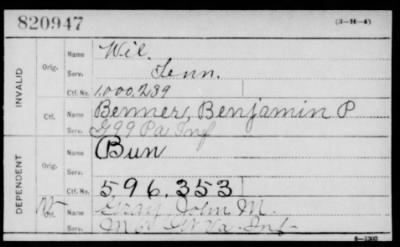 820947 (3—H—4)
INVALID
Orig. Name Wil.
Serv. Tenn.
Ctf. No. 1,000,239
Ctf. Name Benner, Benjamin P
Serv. G 99 Pa Inf
DEPENDENT
Orig. Name Bun
Serv.
Ctf. No. 596,353
Ctf. Name Gray, John M.
Serv. W Va. Inf
6—1302